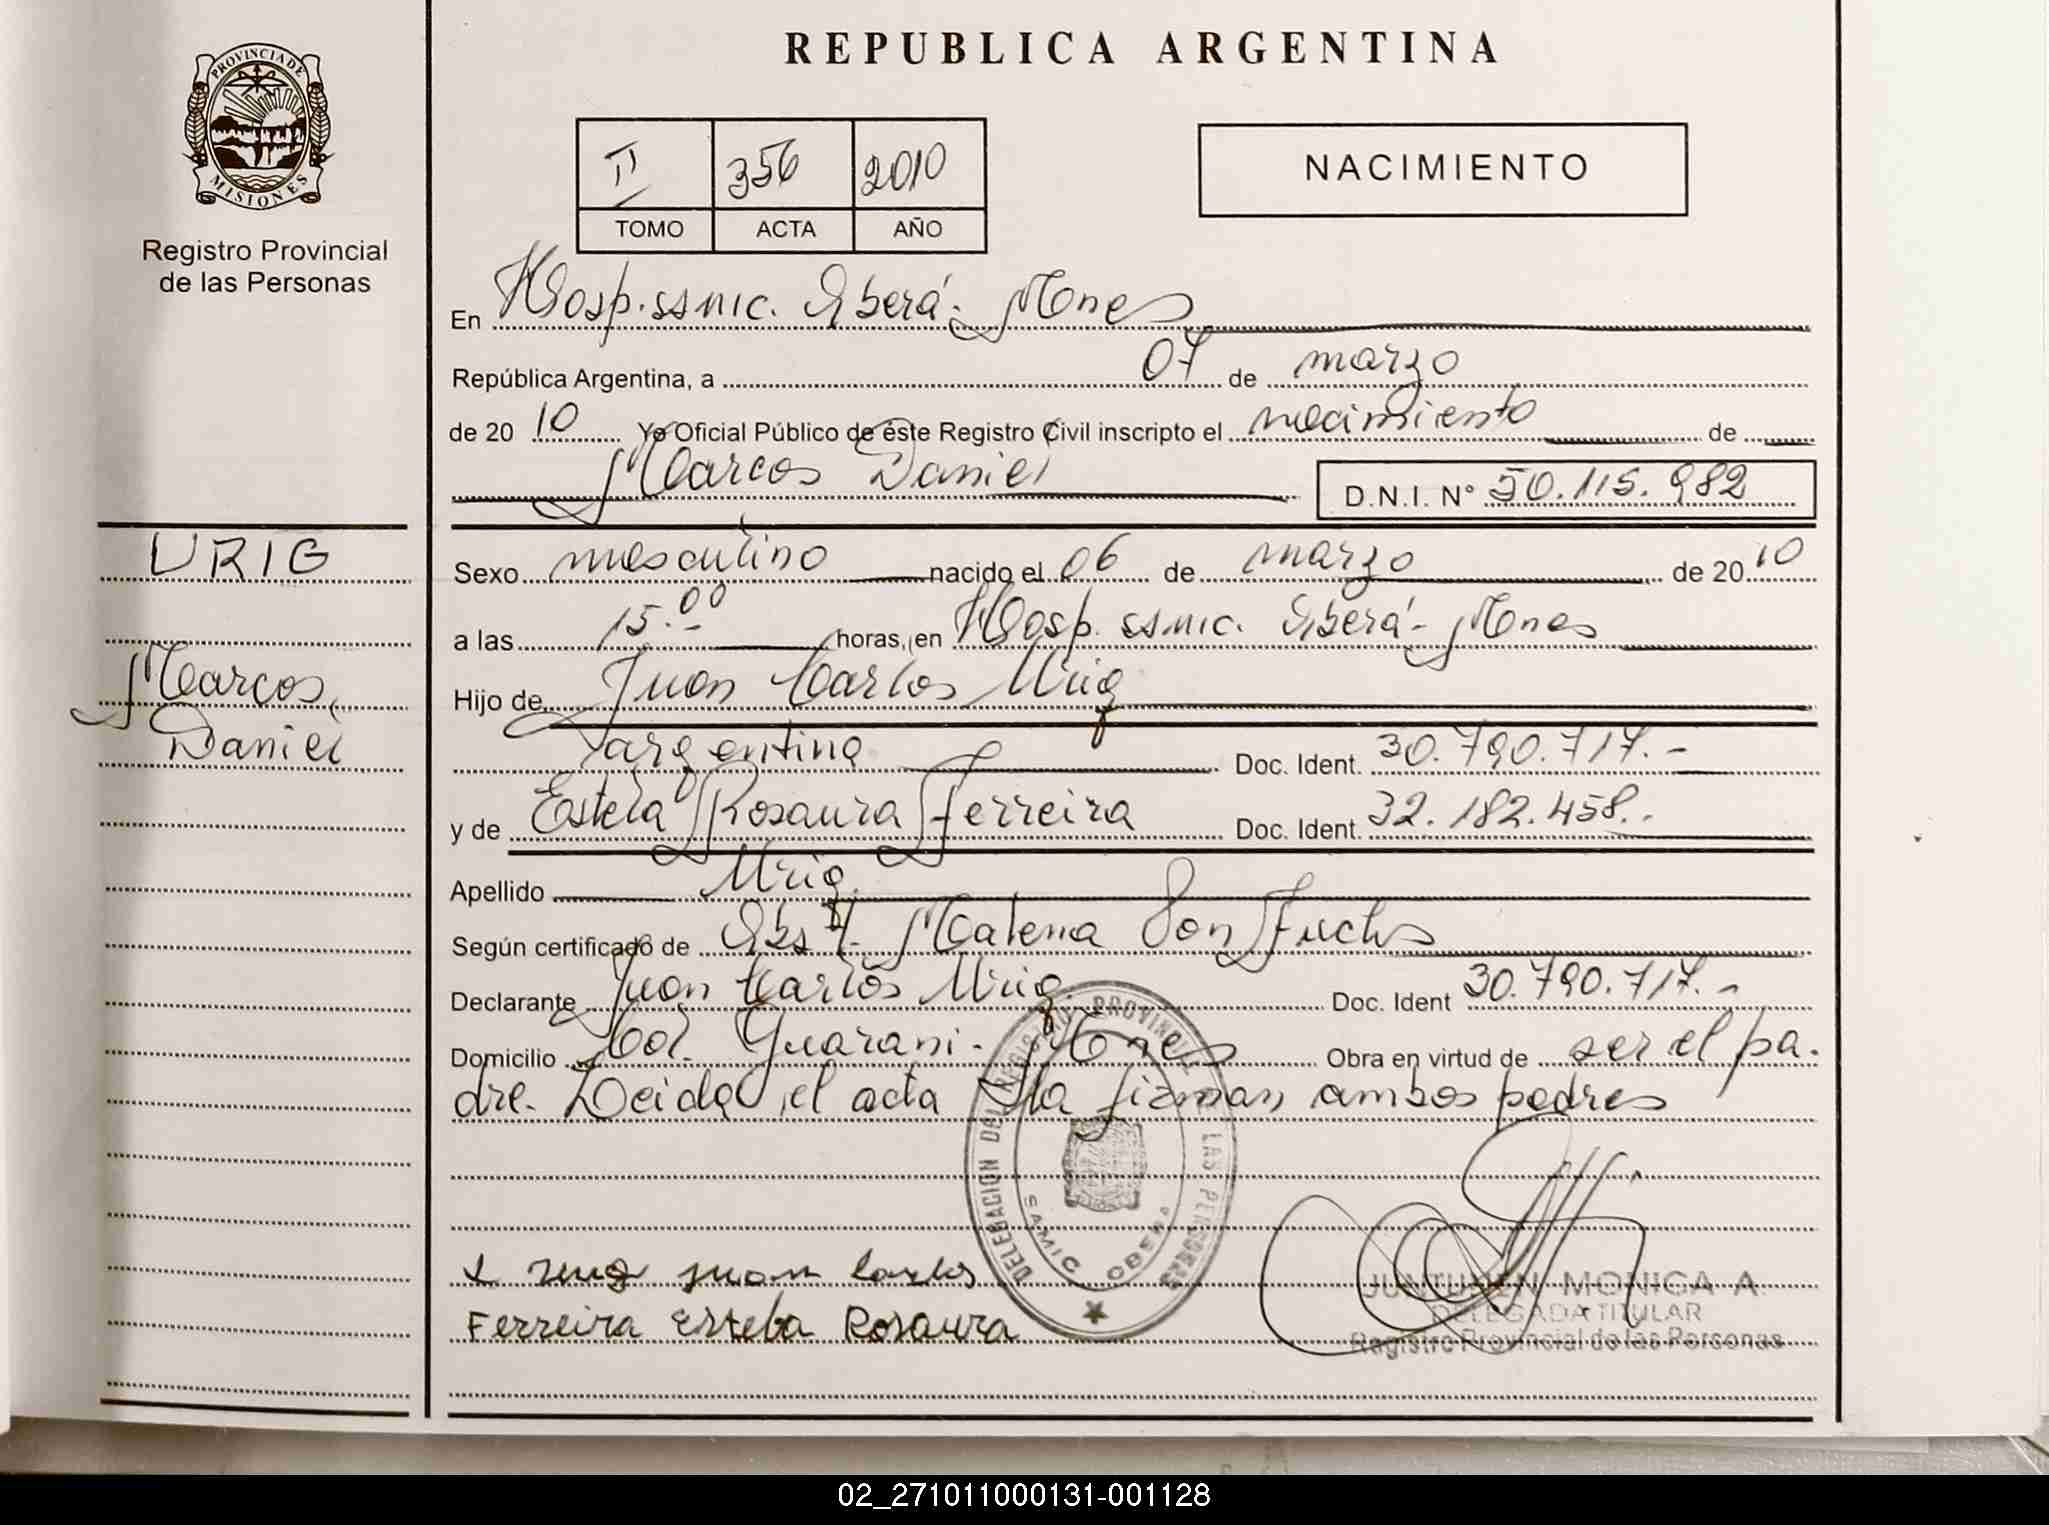 REPUBLICA ARGENTINA
PROVINCIA DE
MISIONES
Registro Provincial
de las Personas
II 356 2010
TOMO ACTA AÑO
NACIMIENTO
En Hosp. SAMIC. Oberá - Mnes
República Argentina, a 07 de marzo
de 20 10 Yo Oficial Público de éste Registro Civil inscripto el nacimiento de
Marcos Daniel D.N.I. N° 50.115.982
URIG
Marcos
Daniel
Sexo masculino nacido el 06 de marzo de 20 10
a las 15.00 horas, en Hosp. SAMIC. Oberá - Mnes
Hijo de Juan Carlos Urig
argentina Doc. Ident. 30.790.717.-
y de Estela Rosaura Ferreira Doc. Ident. 32.182.458.-
Apellido Urig.
Según certificado de Obst. Malena Von Fuchs
Declarante Juan Carlos Urig. Doc. Ident 30.790.717.-
Domicilio Col. Guarani - Mnes Obra en virtud de ser el pa-
dre. Leida el acta la firman ambos padres
DELEGACION DEL REGISTRO PROVINCIAL DE LAS PERSONAS
SAMIC OBERA
Urig Juan Carlos
Ferreira Estela Rosaura
JUNTUNEN MONICA A.
DELEGADA TITULAR
Registro Provincial de las Personas
02_271011000131-001128